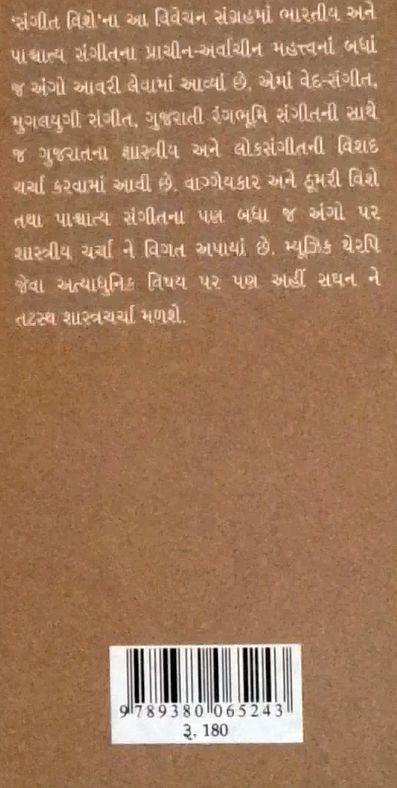 'સંગીત વિશે'ના આ વિવેચન સંગ્રહમાં ભારતીય અને
પાશ્ચાત્ય સંગીતના પ્રાચીન-અર્વાચીન મહત્ત્વનાં બધાં
જ અંગો આવરી લેવામાં આવ્યાં છે. એમાં વેદ-સંગીત,
મુગલયુગી સંગીત, ગુજરાતી રંગભૂમિ સંગીતની સાથે
જ ગુજરાતના શાસ્ત્રીય અને લોકસંગીતની વિશદ
ચર્ચા કરવામાં આવી છે. વાગ્ગેયકાર અને ઠૂમરી વિશે
તથા પાશ્ચાત્ય સંગીતના પણ બધા જ અંગો પર
શાસ્ત્રીય ચર્ચા ને વિગત અપાયાં છે. મ્યૂઝિક થેરપિ
જેવા અત્યાધુનિક વિષય પર પણ અહીં સઘન ને
તટસ્થ શાસ્ત્રચર્ચા મળશે.
9 789380 065243
રૂ. 180